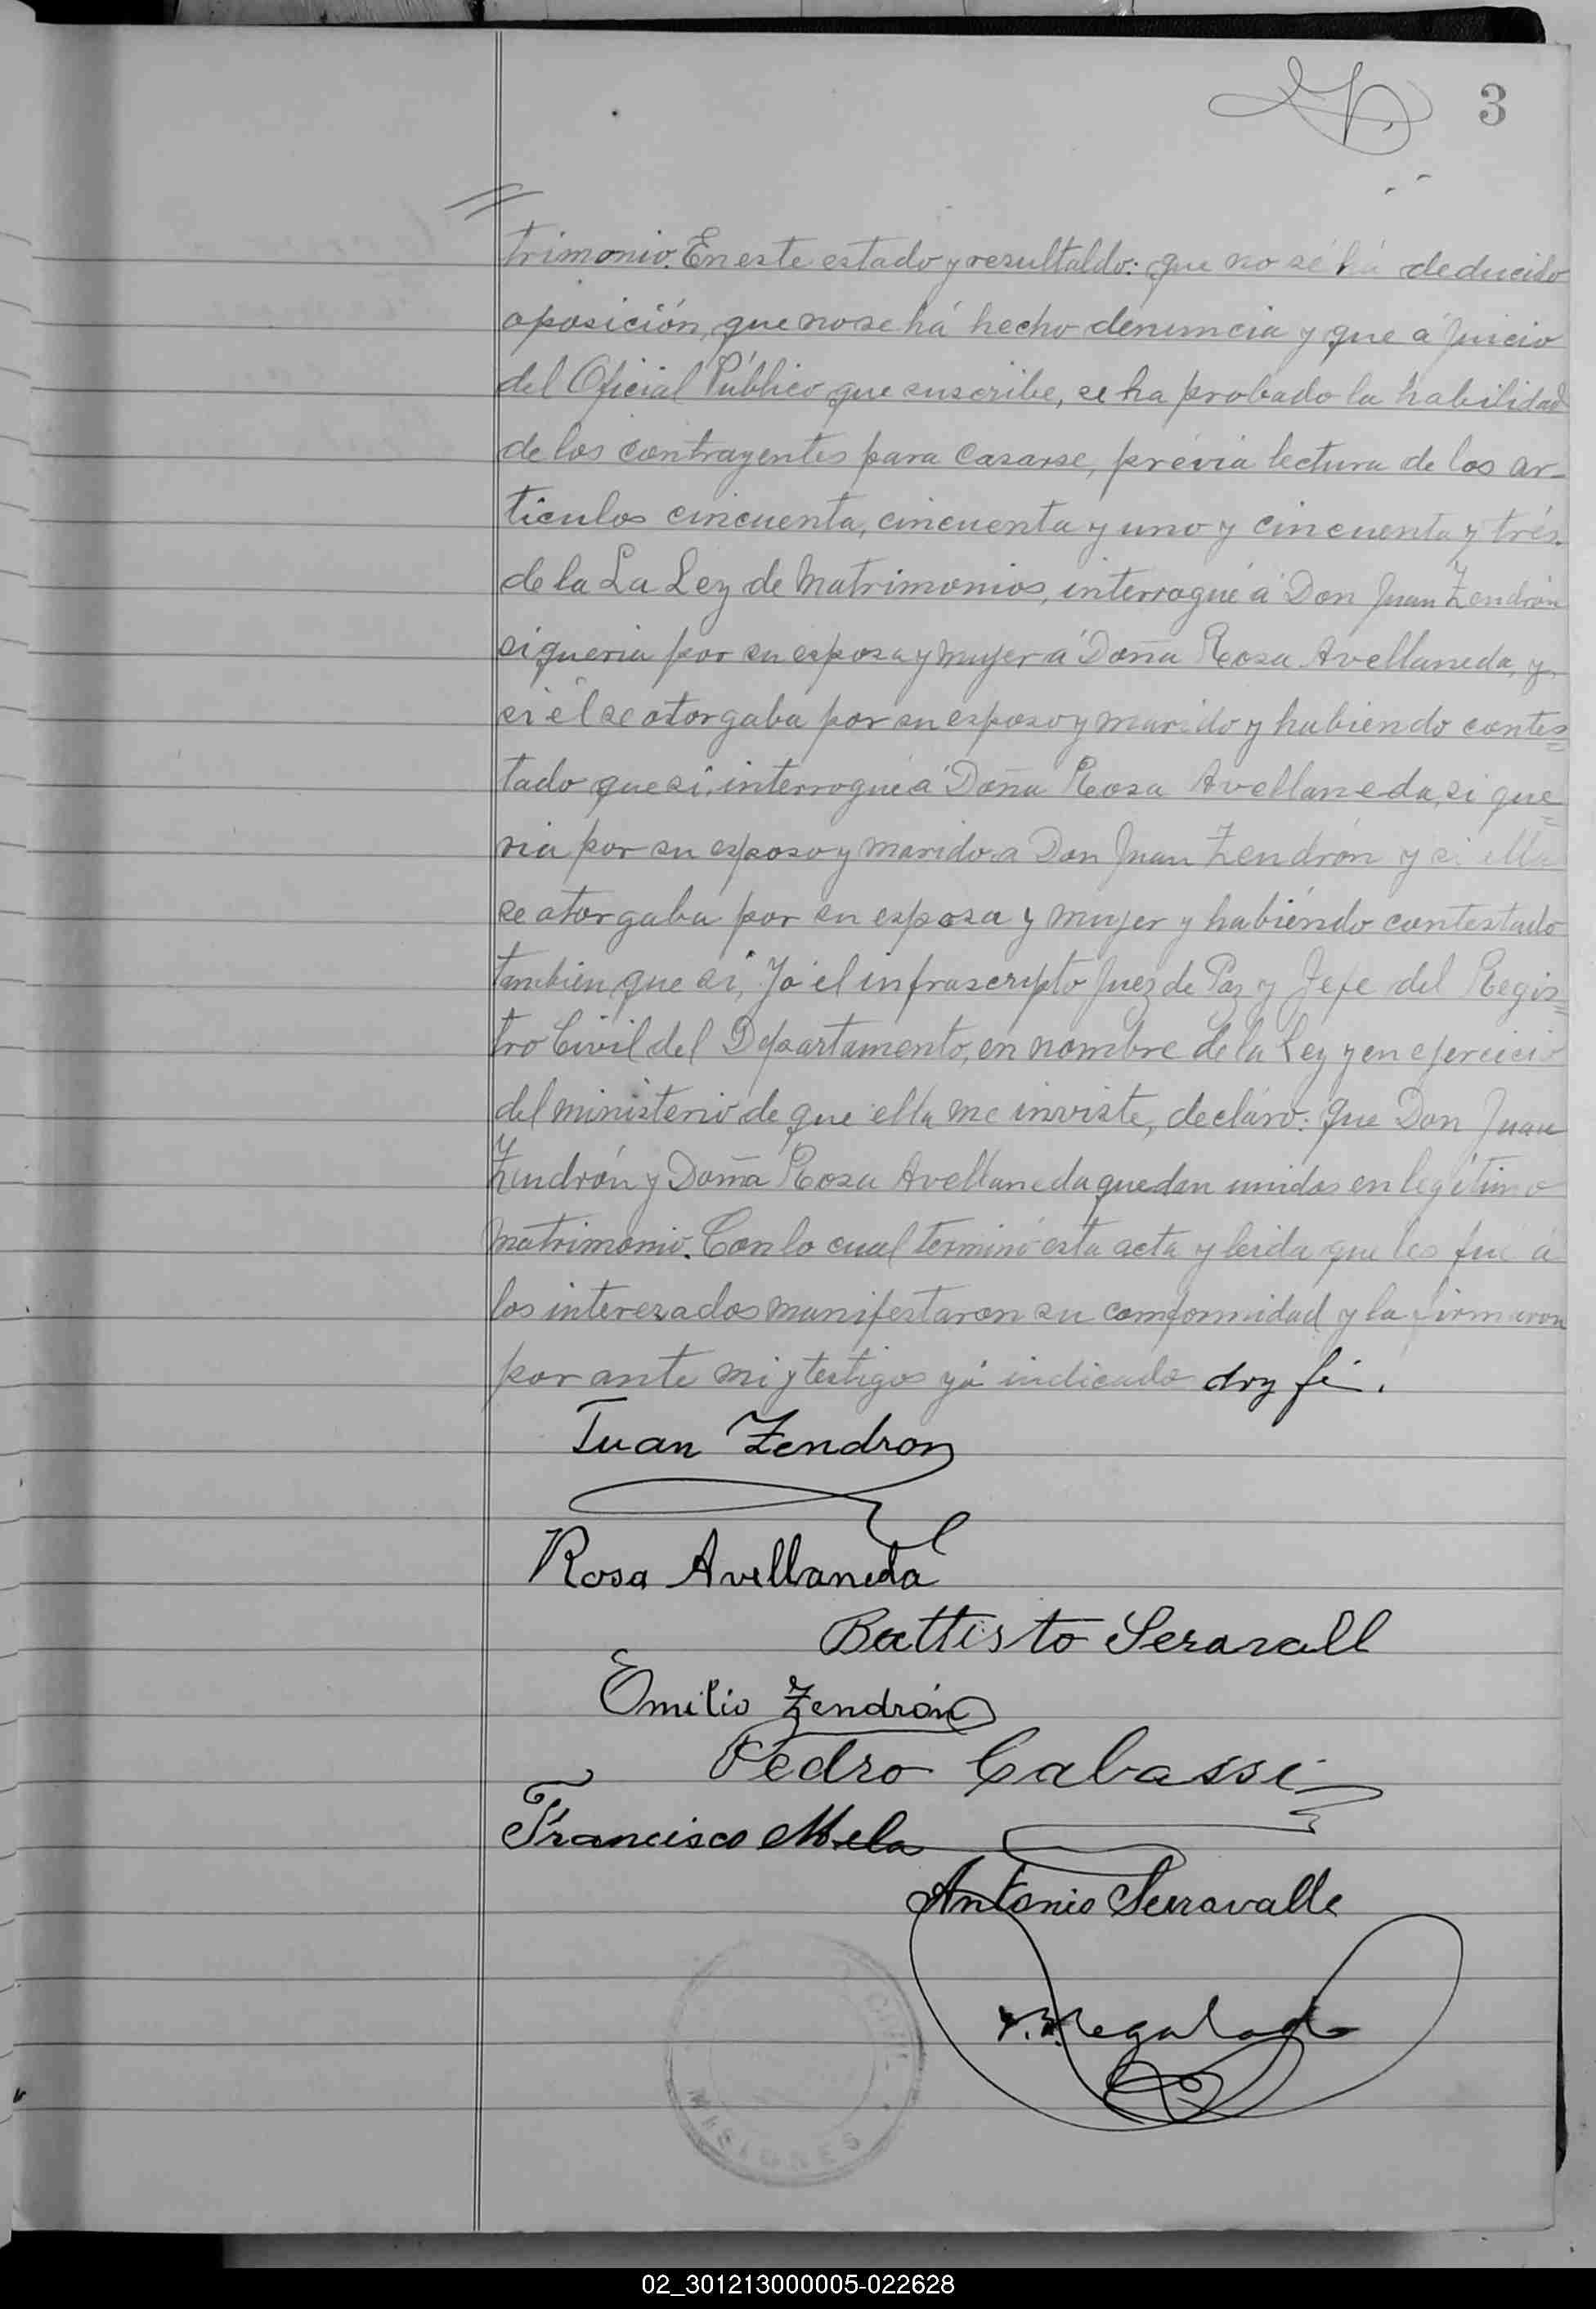 3
trimonio. En este estado y resultaldo: que no sé há deducido
oposición, que no se há hecho denuncia y que á juicio
del Oficial Público que suscribe, se ha probado la habilidad
de los contrayentes para casarse, prévia lectura de los ar-
tículos cincuenta, cincuenta y uno y cincuenta y trés.
de la La Ley de Matrimonios, interrogué á Don Juan Zendrón
si queria por su esposa y mujer á Doña Rosa Avellaneda, y
si él se otorgaba por su esposo y marido y habiendo contes=
tado que si, interrogué á Doña Rosa Avellaneda, si que=
ria por su esposo y marido a Don Juan Zendrón y si ella
se otorgaba por su esposa y mujer y habiéndo contestado
tambien que si, Yo el infrascripto Juez de Paz y Jefe del Regis=
tro Civil del Departamento, en nombre de la Ley y en ejercicio
del ministerio de que ella me inviste, decláro: que Don Juan
Zendrón y Doña Rosa Avellaneda quedan unidos en legítimo
matrimonio. Con lo cual terminó esta acta y leida que les fue á
los interezados manifestaron su comformidad y la firmaron
por ante mi y testigos yá indicado doy fé.
Juan Zendron
Rosa Avellaneda
Battisto Seravall
Emilio Zendrón
Pedro Cabassi
Francisco Mela
Antonio Serravalle
Regalad
CIVIL
MISIONES
02_301213000005-022628